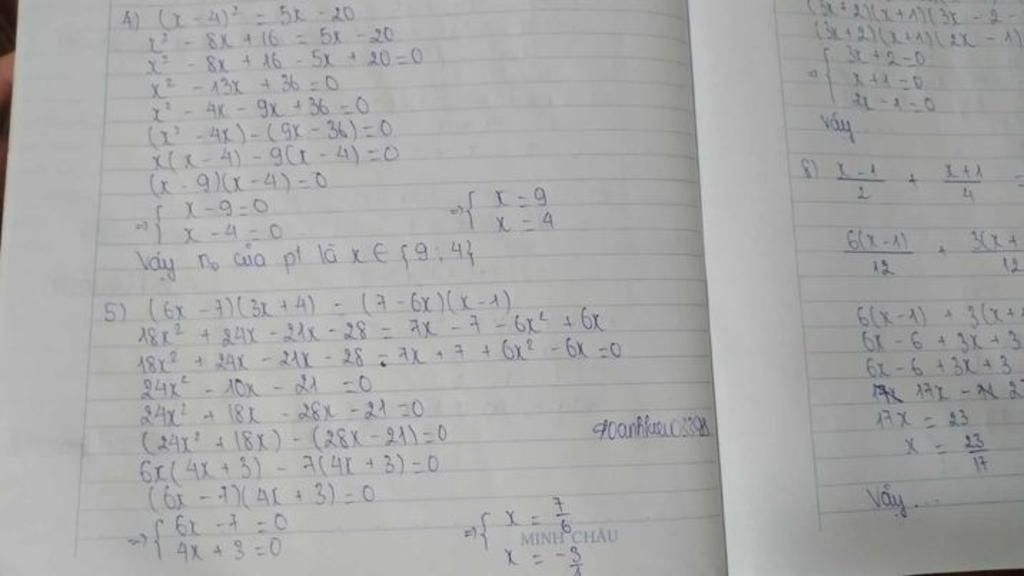 4) (x - 4)² = 5x - 20
x² - 8x + 16 = 5x - 20
x² - 8x + 16 - 5x + 20 = 0
x² - 13x + 36 = 0
x² - 4x - 9x + 36 = 0
(x² - 4x) - (9x - 36) = 0
x(x - 4) - 9(x - 4) = 0
(x - 9)(x - 4) = 0
=> { x - 9 = 0 => { x = 9
x - 4 = 0 x = 4
Vậy n₀ của pt là x ∈ {9; 4}
5) (6x - 7)(3x + 4) = (7 - 6x)(x - 1)
18x² + 24x - 21x - 28 = 7x - 7 - 6x² + 6x
18x² + 24x - 21x - 28 - 7x + 7 + 6x² - 6x = 0
24x² - 10x - 21 = 0
24x² + 18x - 28x - 21 = 0
(24x² + 18x) - (28x - 21) = 0
6x(4x + 3) - 7(4x + 3) = 0
(6x - 7)(4x + 3) = 0
=> { 6x - 7 = 0 => { x = 7/6
4x + 3 = 0 x = -3/4
MINH CHÂU
(3x+2)(x+1)(3x - 2 -
(3x+2)(x+1)(2x - 1)
=> { 3x + 2 = 0
x + 1 = 0
2x - 1 = 0
Vậy
8) (x - 1)/2 + (x + 1)/4 =
6(x-1)/12 + 3(x+ /12
6(x-1) + 3(x+1
6x - 6 + 3x + 3
6x - 6 + 3x + 3
17x - 2
17x = 23
x = 23/17
Vậy ...